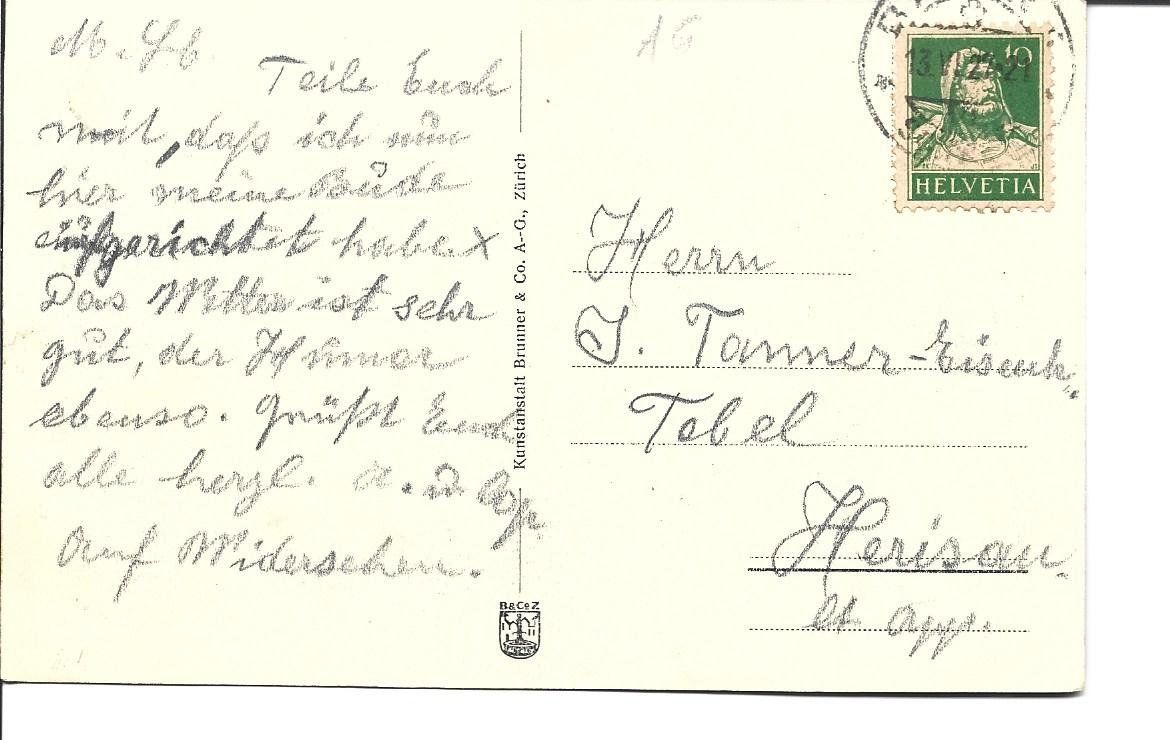 M. Lb.
Teile Euch
mit, daß ich nun
hier meine Bude
aufgerichtet habe
Das Wetter ist sehr
gut, der Humor
ebenso. Grüßt Euch
alle herzl.
Auf Widersehen.
Kunstanstalt Brunner & Co. A.-G., Zürich
B&CoZ
AG
10
13.VI.27-21
HELVETIA
Herrn
J. Tanner-
Tobel
Herisau.
Kt App.